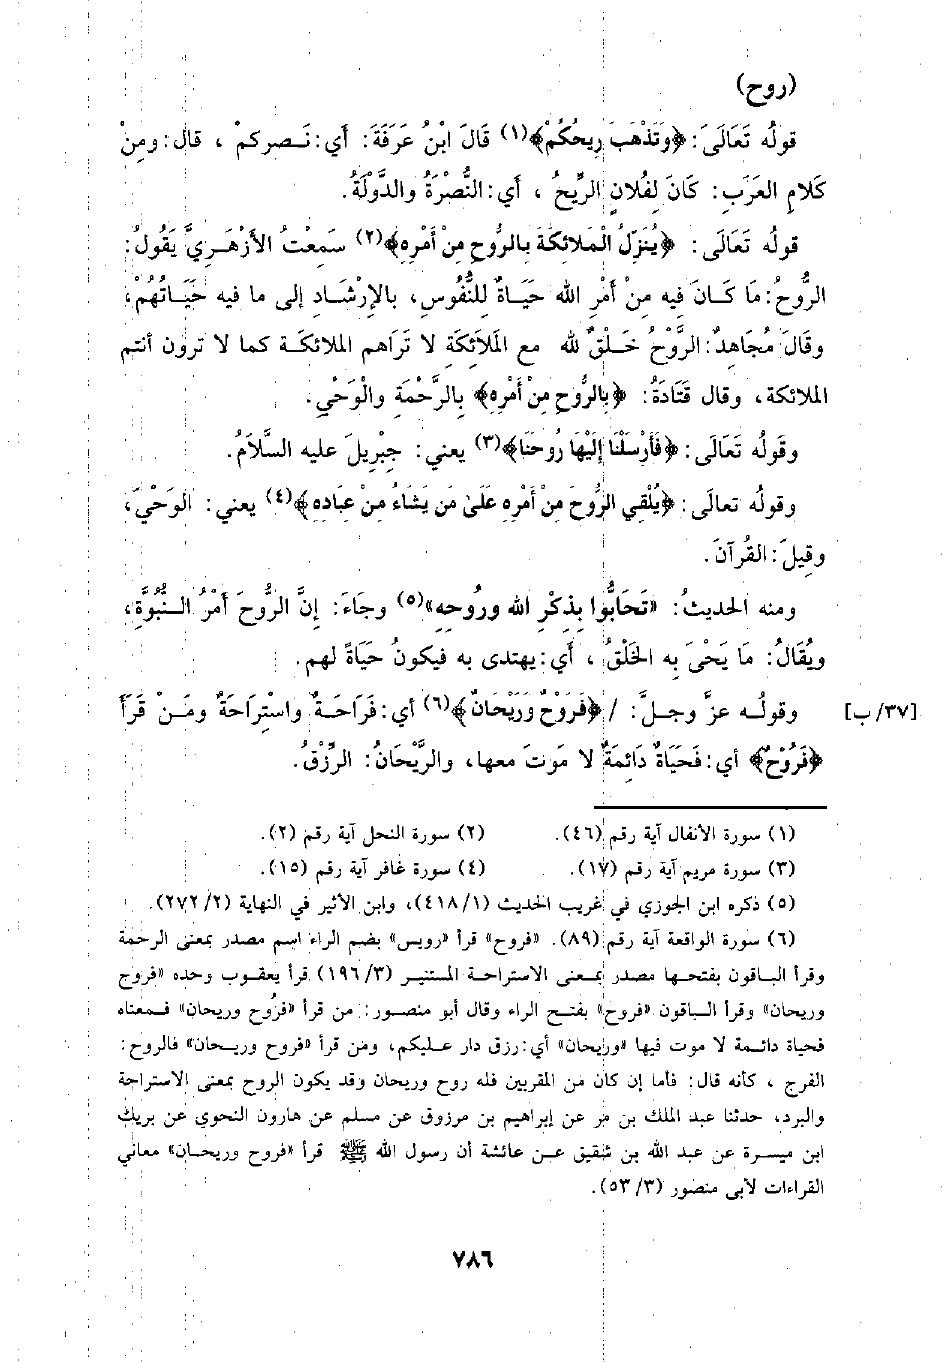 (روح)
قولُه تَعَالَى: ﴿وَتَذْهَبَ رِيحُكُمْ﴾(١) قَالَ ابْنُ عَرَفَةَ: أَي: نَـصركمْ ، قال: ومِنْ
كَلَامِ العَرَبِ: كَانَ لِفُلانٍ الرِّيحُ ، أَي: النُّصْرَةُ والدَّوْلَةُ.
قولُه تَعَالَى: ﴿يُنَزِّلُ الْمَلائِكَةَ بِالرُّوحِ مِنْ أَمْرِهِ﴾(٢) سَمِعْتُ الأَزْهَرِيَّ يَقُولُ:
الرُّوحُ: مَا كَـانَ فِيه مِنْ أَمْرِ الله حَيَاةٌ لِلنُّفُوسِ، بالإِرْشَادِ إلى ما فيه حَيَاتُهُمْ،
وقَالَ مُجَاهِدٌ: الرَّوْحُ خَـلْقٌ لله مع المَلَائِكَةِ لا تَرَاهم الملائكة كما لا ترون أنتم
الملائكة، وقال قَتَادَةُ: ﴿بِالرُّوحِ مِنْ أَمْرِهِ﴾ بِالرَّحْمَةِ والْوَحْيِ.
وقَولُه تَعَالَى: ﴿فَأَرْسَلْنَا إِلَيْهَا رُوحَنَا﴾(٣) يعني: جِبْرِيلَ عليه السَّلامُ.
وقولُه تعالَى: ﴿يُلْقِي الرُّوحَ مِنْ أَمْرِهِ عَلَىٰ مَن يَشَاءُ مِنْ عِبَادِهِ﴾(٤) يعني: الوَحْيَ،
وقِيلَ: القُرآنَ.
ومنه الحديثُ: «تَحَابُّوا بِذِكْرِ الله ورُوحِه»(٥) وجَاءَ: إنَّ الرُّوحَ أَمْرُ النُّبُوَّةِ،
ويُقَالُ: مَا يَحْيَ بِه الخَلْقُ ، أَي: يهتدى به فيكونُ حَيَاةً لهم.
وقولُـه عزَّ وجـلَّ: / ﴿فَرَوْحٌ وَرَيْحَانٌ﴾(٦) أي: فَرَاحَـةٌ واسْتِرَاحَةٌ ومَـنْ قَرَأَ [٣٧/ ب]
﴿فَرُوْحٌ﴾ أي: فَحَيَاةٌ دَائِمَةٌ لا مَوتَ معها، والرَّيْحَانُ: الرِّزْقُ.
(١) سورة الأنفال آية رقم (٤٦). (٢) سورة النحل آية رقم (٢).
(٣) سورة مريم آية رقم (١٧). (٤) سورة غافر آية رقم (١٥).
(٥) ذكره ابن الجوزي في غريب الحديث (٤١٨/١)، وابن الأثير في النهاية (٢٧٢/٢).
(٦) سورة الواقعة آية رقم (٨٩). «فروح» قرأ «رويس» بضم الراء اسم مصدر بمعنى الرحمة
وقرأ الباقون بفتحها مصدر بمعنى الاستراحة المستنير (١٩٦/٣) قرأ يعقوب وحده «فروح
وريحان» وقرأ الباقون «فروح» بفتح الراء وقال أبو منصور: من قرأ «فرُوح وريحان» فمعناه
فحياة دائمة لا موت فيها «وريحان» أي: رزق دار عليكم، ومن قرأ «فروح وريحان» فالروح:
الفرج ، كأنه قال: فأما إن كان من المقربين فله روح وريحان وقد يكون الروح بمعنى الاستراحة
والبرد، حدثنا عبد الملك بن مر عن إبراهيم بن مرزوق عن مسلم عن هارون النحوي عن بريك
ابن ميسرة عن عبد الله بن شقيق عـن عائشة أن رسول الله ﷺ قرأ «فروح وريحان» معاني
القراءات لأبى منصور (٥٣/٣).
٧٨٦